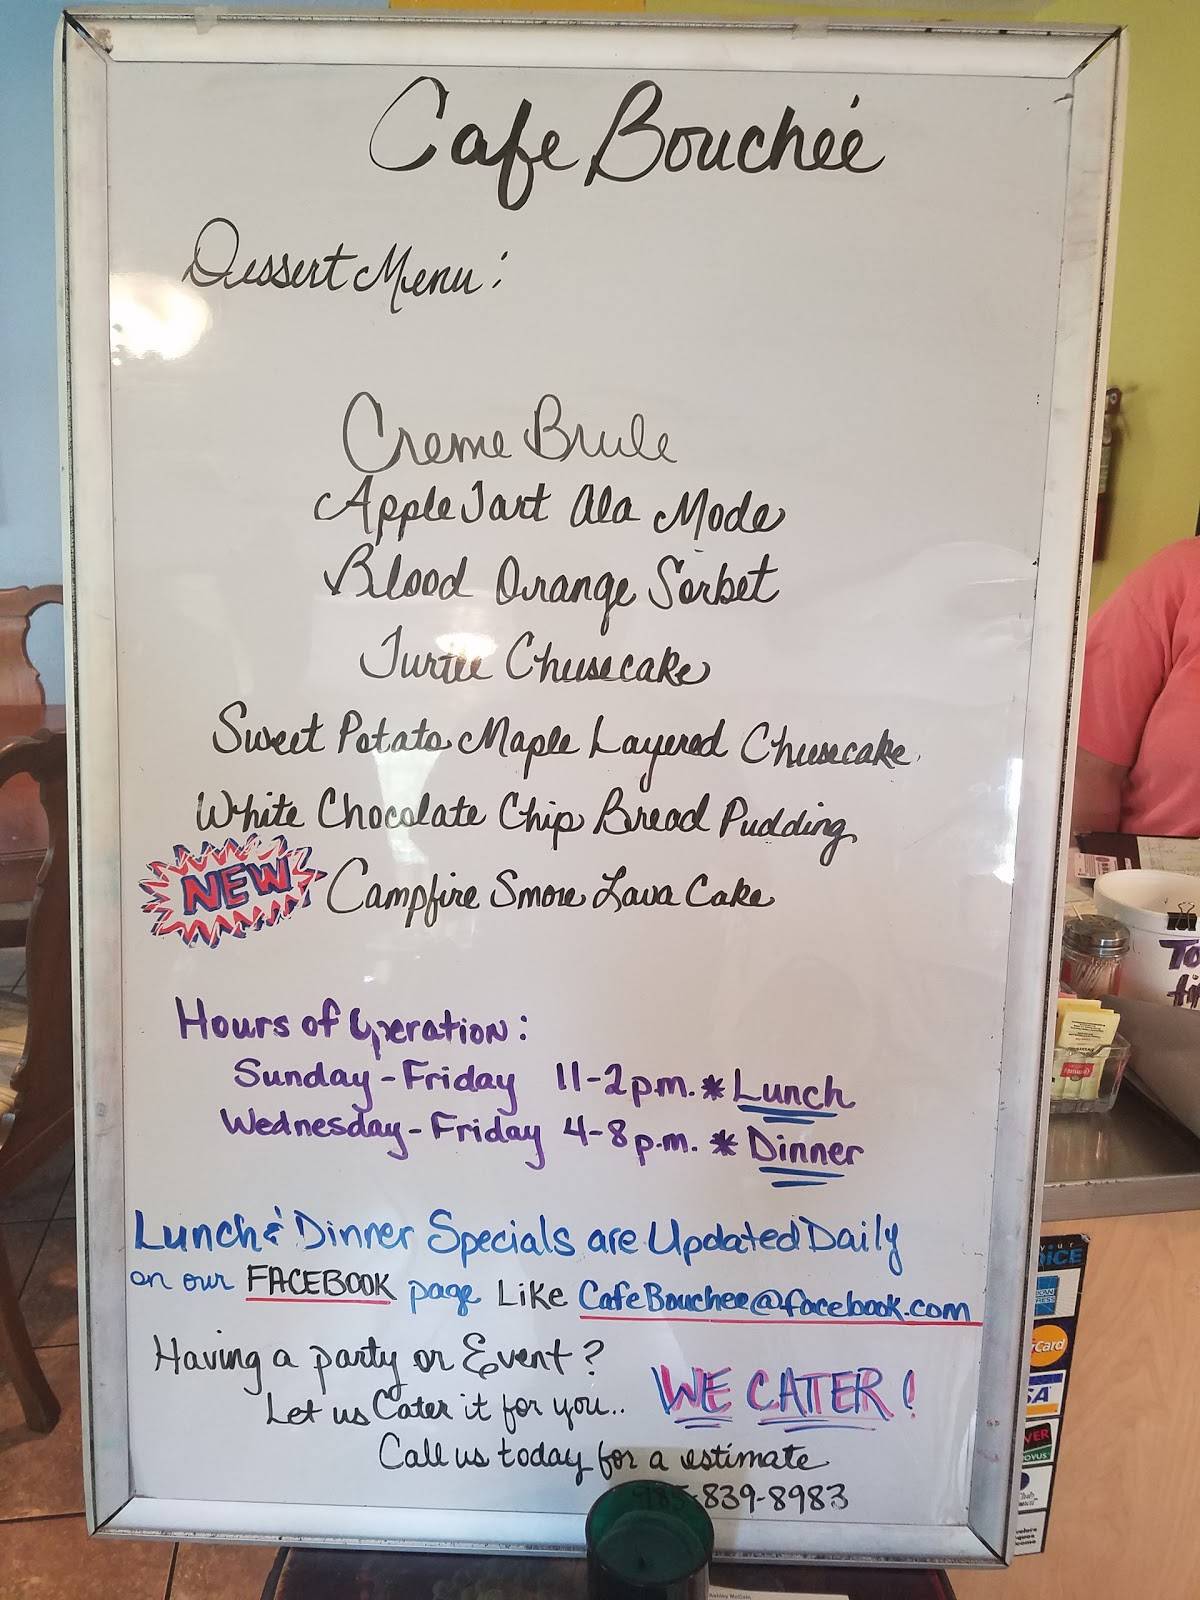 Cafe Bouchée
Dessert Menu:
Creme Brule
Apple Tart Ala Mode
Blood Orange Sorbet
Turtle Cheesecake
Sweet Potato Maple Layered Cheesecake
White Chocolate Chip Bread Pudding
NEW Campfire Smore Lava Cake
Hours of Operation:
Sunday-Friday 11-2p.m. * Lunch
Wednesday-Friday 4-8p.m. * Dinner
Lunch & Dinner Specials are Updated Daily
on our FACEBOOK page Like CafeBouchee@facebook.com
Having a party or Event?
Let us Cater it for you.. WE CATER!
Call us today for a estimate
985-839-8983